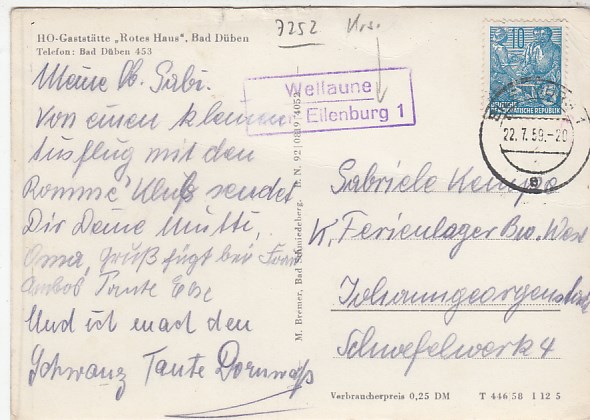 7252
HO-Gaststätte „Rotes Haus“, Bad Düben
Telefon: Bad Düben 453
Meine lb. Gabi.
Von einen kleinen
Ausflug mit den
Rommé Klub sendet
Dir Deine Mutti,
Oma, Gruß fügt bei Frau
Tante Else
Und ich mach den
Schwanz Tante
M. Bremer, Bad Schmiedeberg.
Wellaune
Eilenburg 1
10
DEUTSCHE
DEMOKRATISCHE REPUBLIK
22.7.59.-20
Gabriele Kempe
K, Ferienlager Bw. West
Johanngeorgenstadt
Schwefelwerk 4
Verbraucherpreis 0,25 DM T 446 58 I 12 5